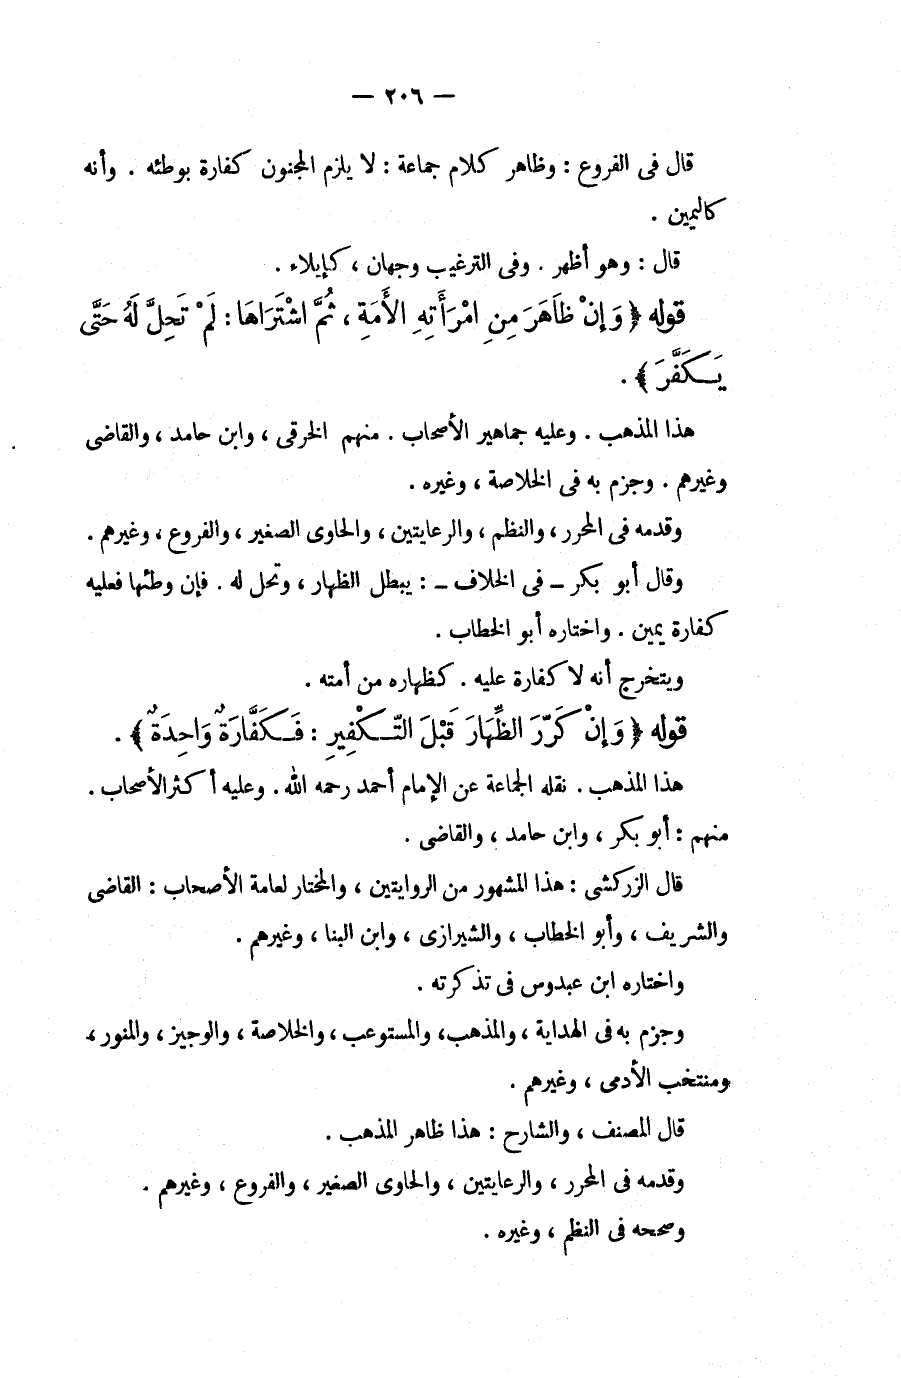 — ٢٠٦ —
قال فى الفروع : وظاهر كلام جماعة : لا يلزم المجنون كفارة بوطئه . وأنه
كاليمين .
قال : وهو أظهر . وفى الترغيب وجهان ، كإيلاء .
قوله ﴿ وَإِنْ ظَاهَرَ مِنِ امْرَأَتِهِ الأَمَةِ ، ثُمَّ اشْتَرَاهَا : لَمْ تَحِلَّ لَهُ حَتَّى
يَـكَفَّرَ ﴾ .
هذا المذهب . وعليه جماهير الأصحاب . منهم الخرقى ، وابن حامد ، والقاضى
وغيرهم . وجزم به فى الخلاصة ، وغيره .
وقدمه فى المحرر ، والنظم ، والرعايتين ، والحاوى الصغير ، والفروع ، وغيرهم .
وقال أبو بكر ــ فى الخلاف ــ : يبطل الظهار ، وتحل له . فإن وطئها فعليه
كفارة يمين . واختاره أبو الخطاب .
ويتخرج أنه لا كفارة عليه . كظهاره من أمته .
قوله ﴿ وَإِنْ كَرّرَ الظِّهَارَ قَبْلَ التَّـكْفِيرِ : فَـكَفَّارَةٌ وَاحِدَةٌ ﴾ .
هذا المذهب . نقله الجماعة عن الإمام أحمد رحمه الله . وعليه أكثر الأصحاب .
منهم : أبو بكر ، وابن حامد ، والقاضى .
قال الزركشى : هذا المشهور من الروايتين ، والمختار لعامة الأصحاب : القاضى
والشريف ، وأبو الخطاب ، والشيرازى ، وابن البنا ، وغيرهم .
واختاره ابن عبدوس فى تذكرته .
وجزم به فى الهداية ، والمذهب ، والمستوعب ، والخلاصة ، والوجيز ، والمنور ،
ومنتخب الأدمى ، وغيرهم .
قال المصنف ، والشارح : هذا ظاهر المذهب .
وقدمه فى المحرر ، والرعايتين ، والحاوى الصغير ، والفروع ، وغيرهم .
وصححه فى النظم ، وغيره .